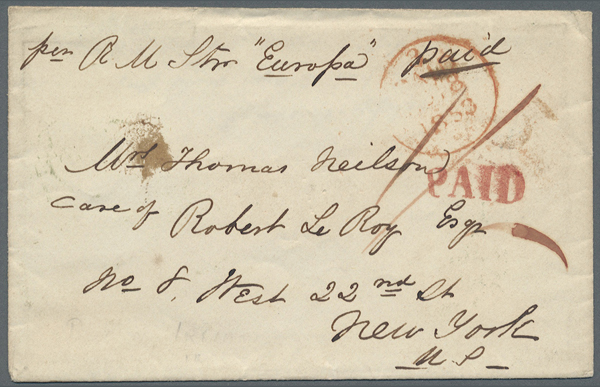 per R M Str "Europa" paid
PAID
Mrs Thomas Neilson
Care of Robert Le Roy Esqr
No 8, West 22nd St
New York
U S